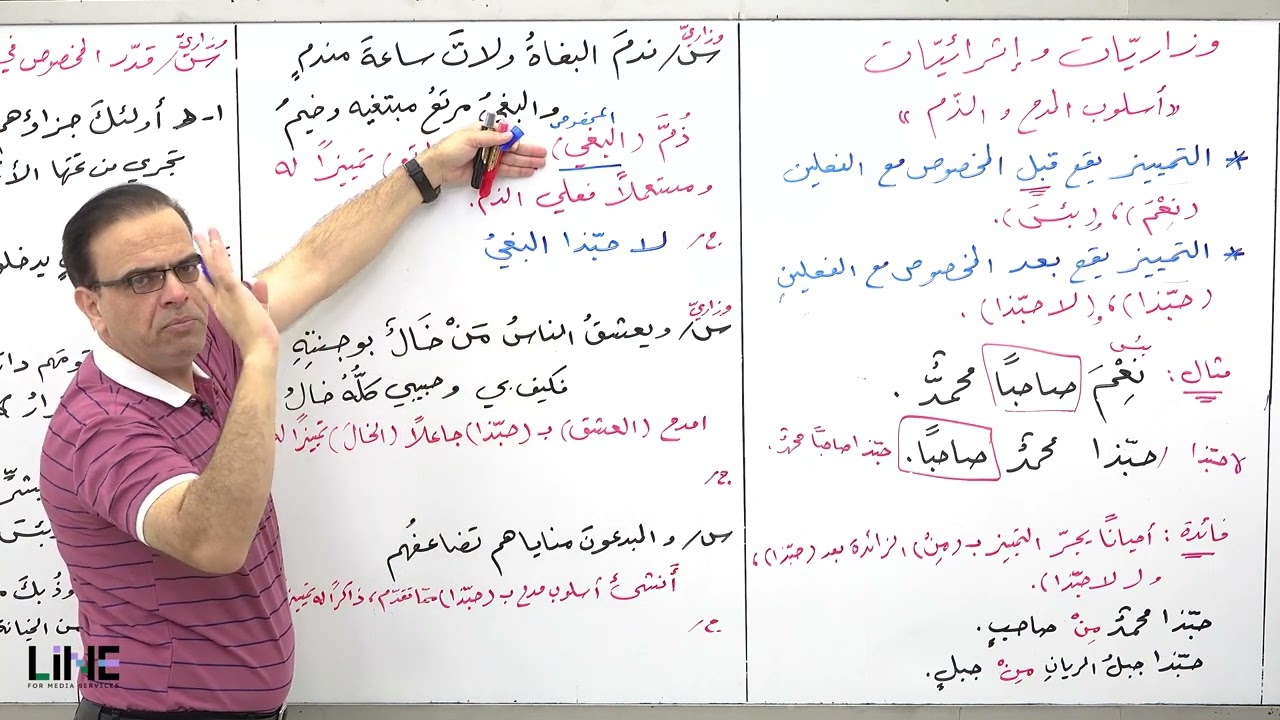 وزاريّات وإثرائيّات
«أسلوب المدح والذّم»
* التمييز يقع قبل المخصوص مع الفعلين
(نِعْمَ)، و(بئسَ).
* التمييز يقع بعد المخصوص مع الفعلينِ
(حبّذا)، و(لا حبّذا).
بئس
مثال: نِعْمَ صاحبًا محمدٌ.
لا حبّذا / حبّذا محمدٌ صاحبًا. حبّذا صاحبًا محمدٌ.
فائدة: أحيانًا يجرّ التمييز بـ(مِنْ) الزائدة بعد (حبّذا)،
و(لا حبّذا).
حبّذا محمدٌ مِنْ صاحبٍ.
حبّذا جبلُ الريانِ مِنْ جبلٍ.
وزاريّ
س/ ندمَ البغاةُ ولاتَ ساعةَ مندمٍ
والبغيُ مرتعُ مبتغيه وخيمُ
المخصوص
ذُمَّ (البغي) تمييزًا له
ومستعملاً فعلي الذم.
ج/ لا حبّذا البغيُ
وزاريّ
س/ ويعشقُ الناسُ مَنْ خالٌ بوجنتِهِ
فكيف بي وحبيبي كلُّهُ خالُ
امدح (العشقَ) بـ(حبّذا) جاعلاً (الخالَ) تمييزًا له
ج/
س/ والبدعونَ مناياهم تضاعفُهم
أَنشئْ أسلوب مدح بـ(حبّذا) ممّا تقدّم، ذاكرًا له تمييز
ج/
وزاريّ
س/ قدّر المخصوص في
١- أولئكَ جزاؤهم
تجري من تحتها الأ
يدخلو
LiNE
FOR MEDIA SERVICES